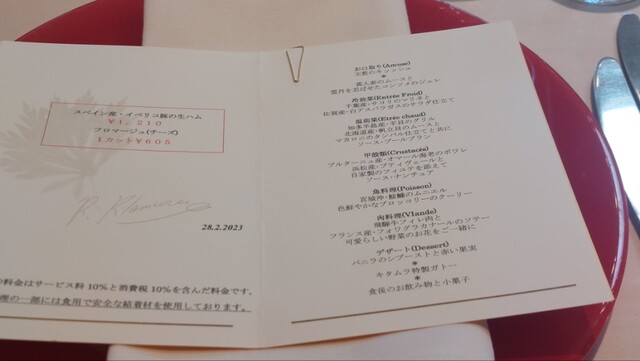 スペイン産・イベリコ豚の生ハム
￥1,210
フロマージュ(チーズ)
1カット￥605
28.2.2023
料金はサービス料10％と消費税10％を含んだ料金です。
理の一部には食用で安全な結着材を使用しております。
お口取り(Amuse)
玄穀のキッシュ
*
黄人参のムースと
雲丹を忍ばせたコンソメのジュレ
冷前菜(Entrée Froid)
千葉産・サヨリのマリネと
佐賀産・白アスパラガスのサラダ仕立て
温前菜(Etrée chaud)
知多半島産・平貝のグリル
北海道産・帆立貝のムースと
マカロニのタンバル仕立てと共に
ソース・ブールブラン
甲殻類(Crustacés)
ブルターニュ産・オマール海老のポワレ
浜松産・プティヴェールと
自家製のフィユテを添えて
ソース・ナンチュア
魚料理(Poisson)
宮城沖・鮟鱇のムニエル
色鮮やかなブロッコリーのクーリー
肉料理(Viande)
飛騨牛フィレ肉と
フランス産・フォワグラカナールのソテー
可愛らしい野菜のお花をご一緒に
デザート(Dessert)
バニラのシブーストと赤い果実
*
キタムラ特製ガトー
*
食後のお飲み物と小菓子